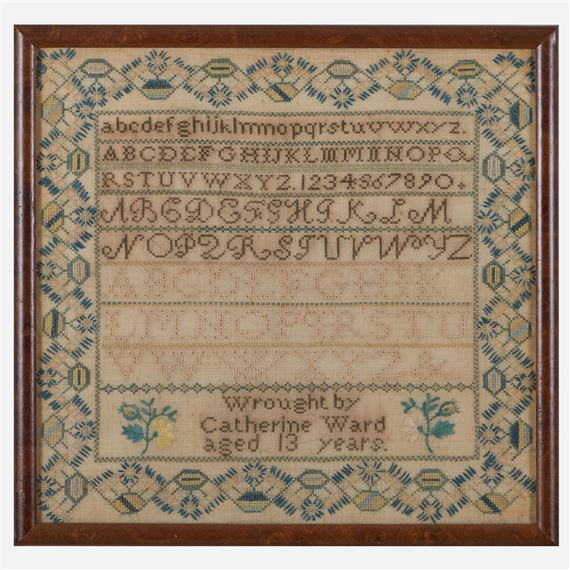 abcdefghijklmnopqrstuvwxyz.
ABCDEFGHIJKLMNOPQ
RSTUVWXYZ.1234567890.
ABCDEFGHIKLM
NOPQRSTUVWYZ
ABCDEFGHIK
LMNOPQRSTU
VWXYZ&
Wrought by
Catherine Ward
aged 13 years.